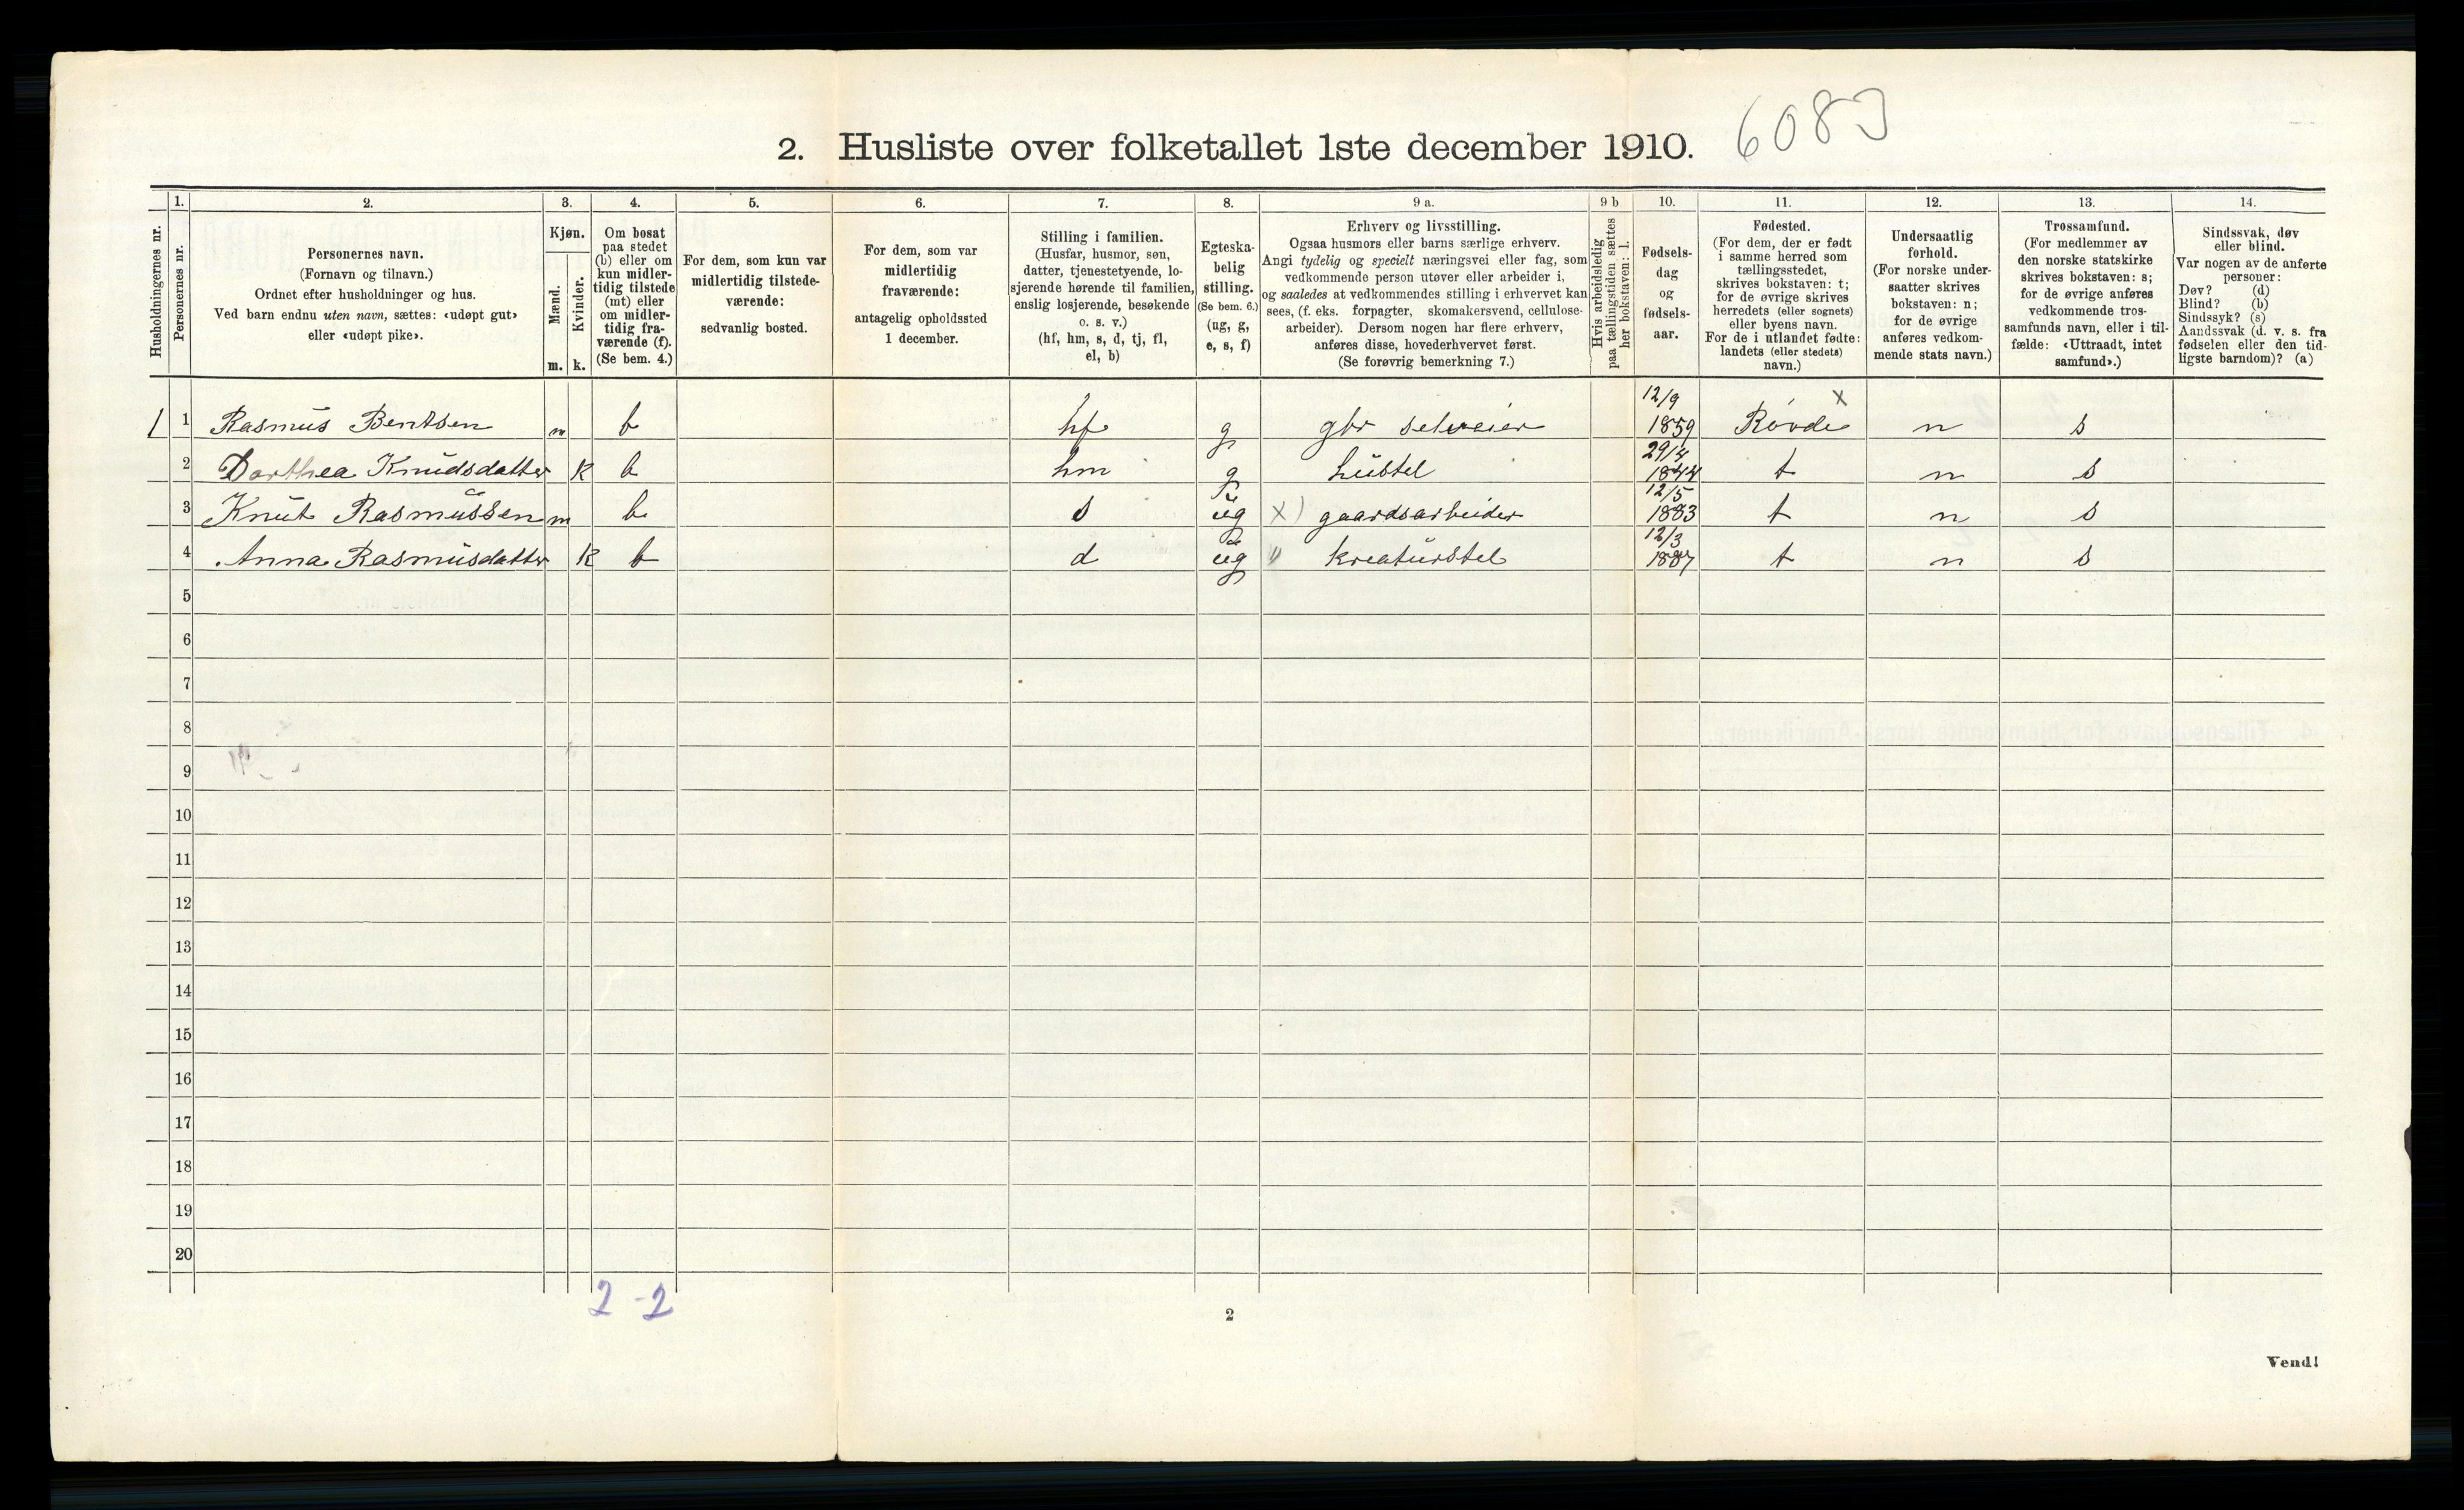 6083
2. Husliste over folketallet 1ste december 1910.
Husholdningernes nr.
1.
Personernes nr.
2.
Personernes navn.
(Fornavn og tilnavn.)
Ordnet efter husholdninger og hus.
Ved barn endnu uten navn, sættes: «udøpt gut»
eller «udøpt pike».
3.
Kjøn.
Mænd.
Kvinder.
m. k.
4.
Om bosat
paa stedet
(b) eller om
kun midler-
tidig tilstede
(mt) eller
om midler-
tidig fra-
værende (f).
(Se bem. 4.)
5.
For dem, som kun var
midlertidig tilstede-
værende:
sedvanlig bosted.
6.
For dem, som var
midlertidig
fraværende:
antagelig opholdssted
1 december.
7.
Stilling i familien.
(Husfar, husmor, søn,
datter, tjenestetyende, lo-
sjerende hørende til familien,
enslig losjerende, besøkende
o. s. v.)
(hf, hm, s, d, tj, fl,
el, b)
8.
Egteska-
belig
stilling.
(Se bem. 6.)
(ug, g,
e, s, f)
9 a.
Erhverv og livsstilling.
Ogsaa husmors eller barns særlige erhverv.
Angi tydelig og specielt næringsvei eller fag, som
vedkommende person utøver eller arbeider i,
og saaledes at vedkommendes stilling i erhvervet kan
sees, (f. eks. forpagter, skomakersvend, cellulose-
arbeider). Dersom nogen har flere erhverv,
anføres disse, hovederhvervet først.
(Se forøvrig bemerkning 7.)
9 b
Hvis arbeidsledig
paa tællingstiden sættes
her bokstaven: l.
10.
Fødsels-
dag
og
fødsels-
aar.
11.
Fødested.
(For dem, der er født
i samme herred som
tællingsstedet,
skrives bokstaven: t;
for de øvrige skrives
herredets (eller sognets)
eller byens navn.
For de i utlandet fødte:
landets (eller stedets)
navn.)
12.
Undersaatlig
forhold.
(For norske under-
saatter skrives
bokstaven: n;
for de øvrige
anføres vedkom-
mende stats navn.)
13.
Trossamfund.
(For medlemmer av
den norske statskirke
skrives bokstaven: s;
for de øvrige anføres
vedkommende tros-
samfunds navn, eller i til-
fælde: «Uttraadt, intet
samfund».)
14.
Sindssvak, døv
eller blind.
Var nogen av de anførte
personer:
Døv? (d)
Blind? (b)
Sindssyk? (s)
Aandssvak (d. v. s. fra
fødselen eller den tid-
ligste barndom)? (a)
1 1 Rasmus Bentsen m b hf g gbr selveier 12/9 1859 Røvde x n s
2 Dorthea Knudsdatter k b hm g hustel 29/4 1844 t n s
3 Knut Rasmussen m b s ug x) gaardsarbeider 12/5 1883 t n s
4 Anna Rasmusdatter k b d ug " kreaturstel 12/3 1887 t n s
5
6
7
8
9
10
11
12
13
14
15
16
17
18
19
20
2 - 2
2
Vend!